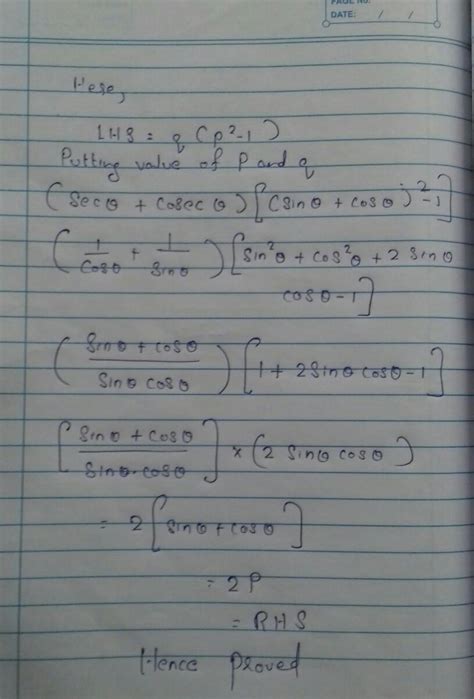 PAGE NO.
DATE: / /
Here,
LHS = q (p²-1)
Putting value of P and q
(Secθ + cosec θ) [(sinθ + cosθ)²-1]
(1/cosθ + 1/sinθ) [sin²θ + cos²θ + 2 sinθ
cosθ-1]
(sinθ + cosθ / sinθ cosθ) [1 + 2sinθ cosθ-1]
[sinθ + cosθ / sinθ.cosθ] × (2 sinθ cosθ)
= 2 [sinθ + cosθ]
= 2P
= RHS
Hence Proved